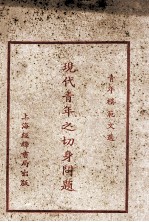 青年模範文選
現代青年之切身問題
上海經緯書局出版